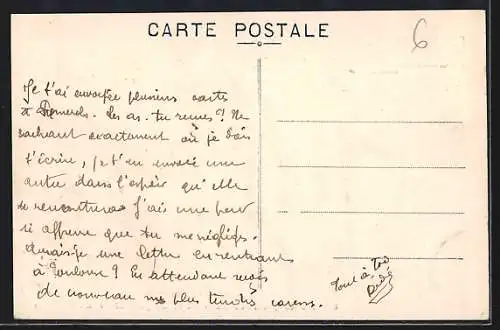 CARTE POSTALE
6
Je t'ai envoyée plusieurs carts
à . Les as-tu reçues? Ne
sachant exactement où je dois
t'écrire, je t'en envoie une
autre dans l'espoir qu'elle
te rencontrera J'ai une peur
si affreuse que tu me négliges.
Aurais-je une lettre en rentrant
à Toulouse? En attendant reçois
de nouveau mes plus tendres caresses.
Tout à Toi
Dédé